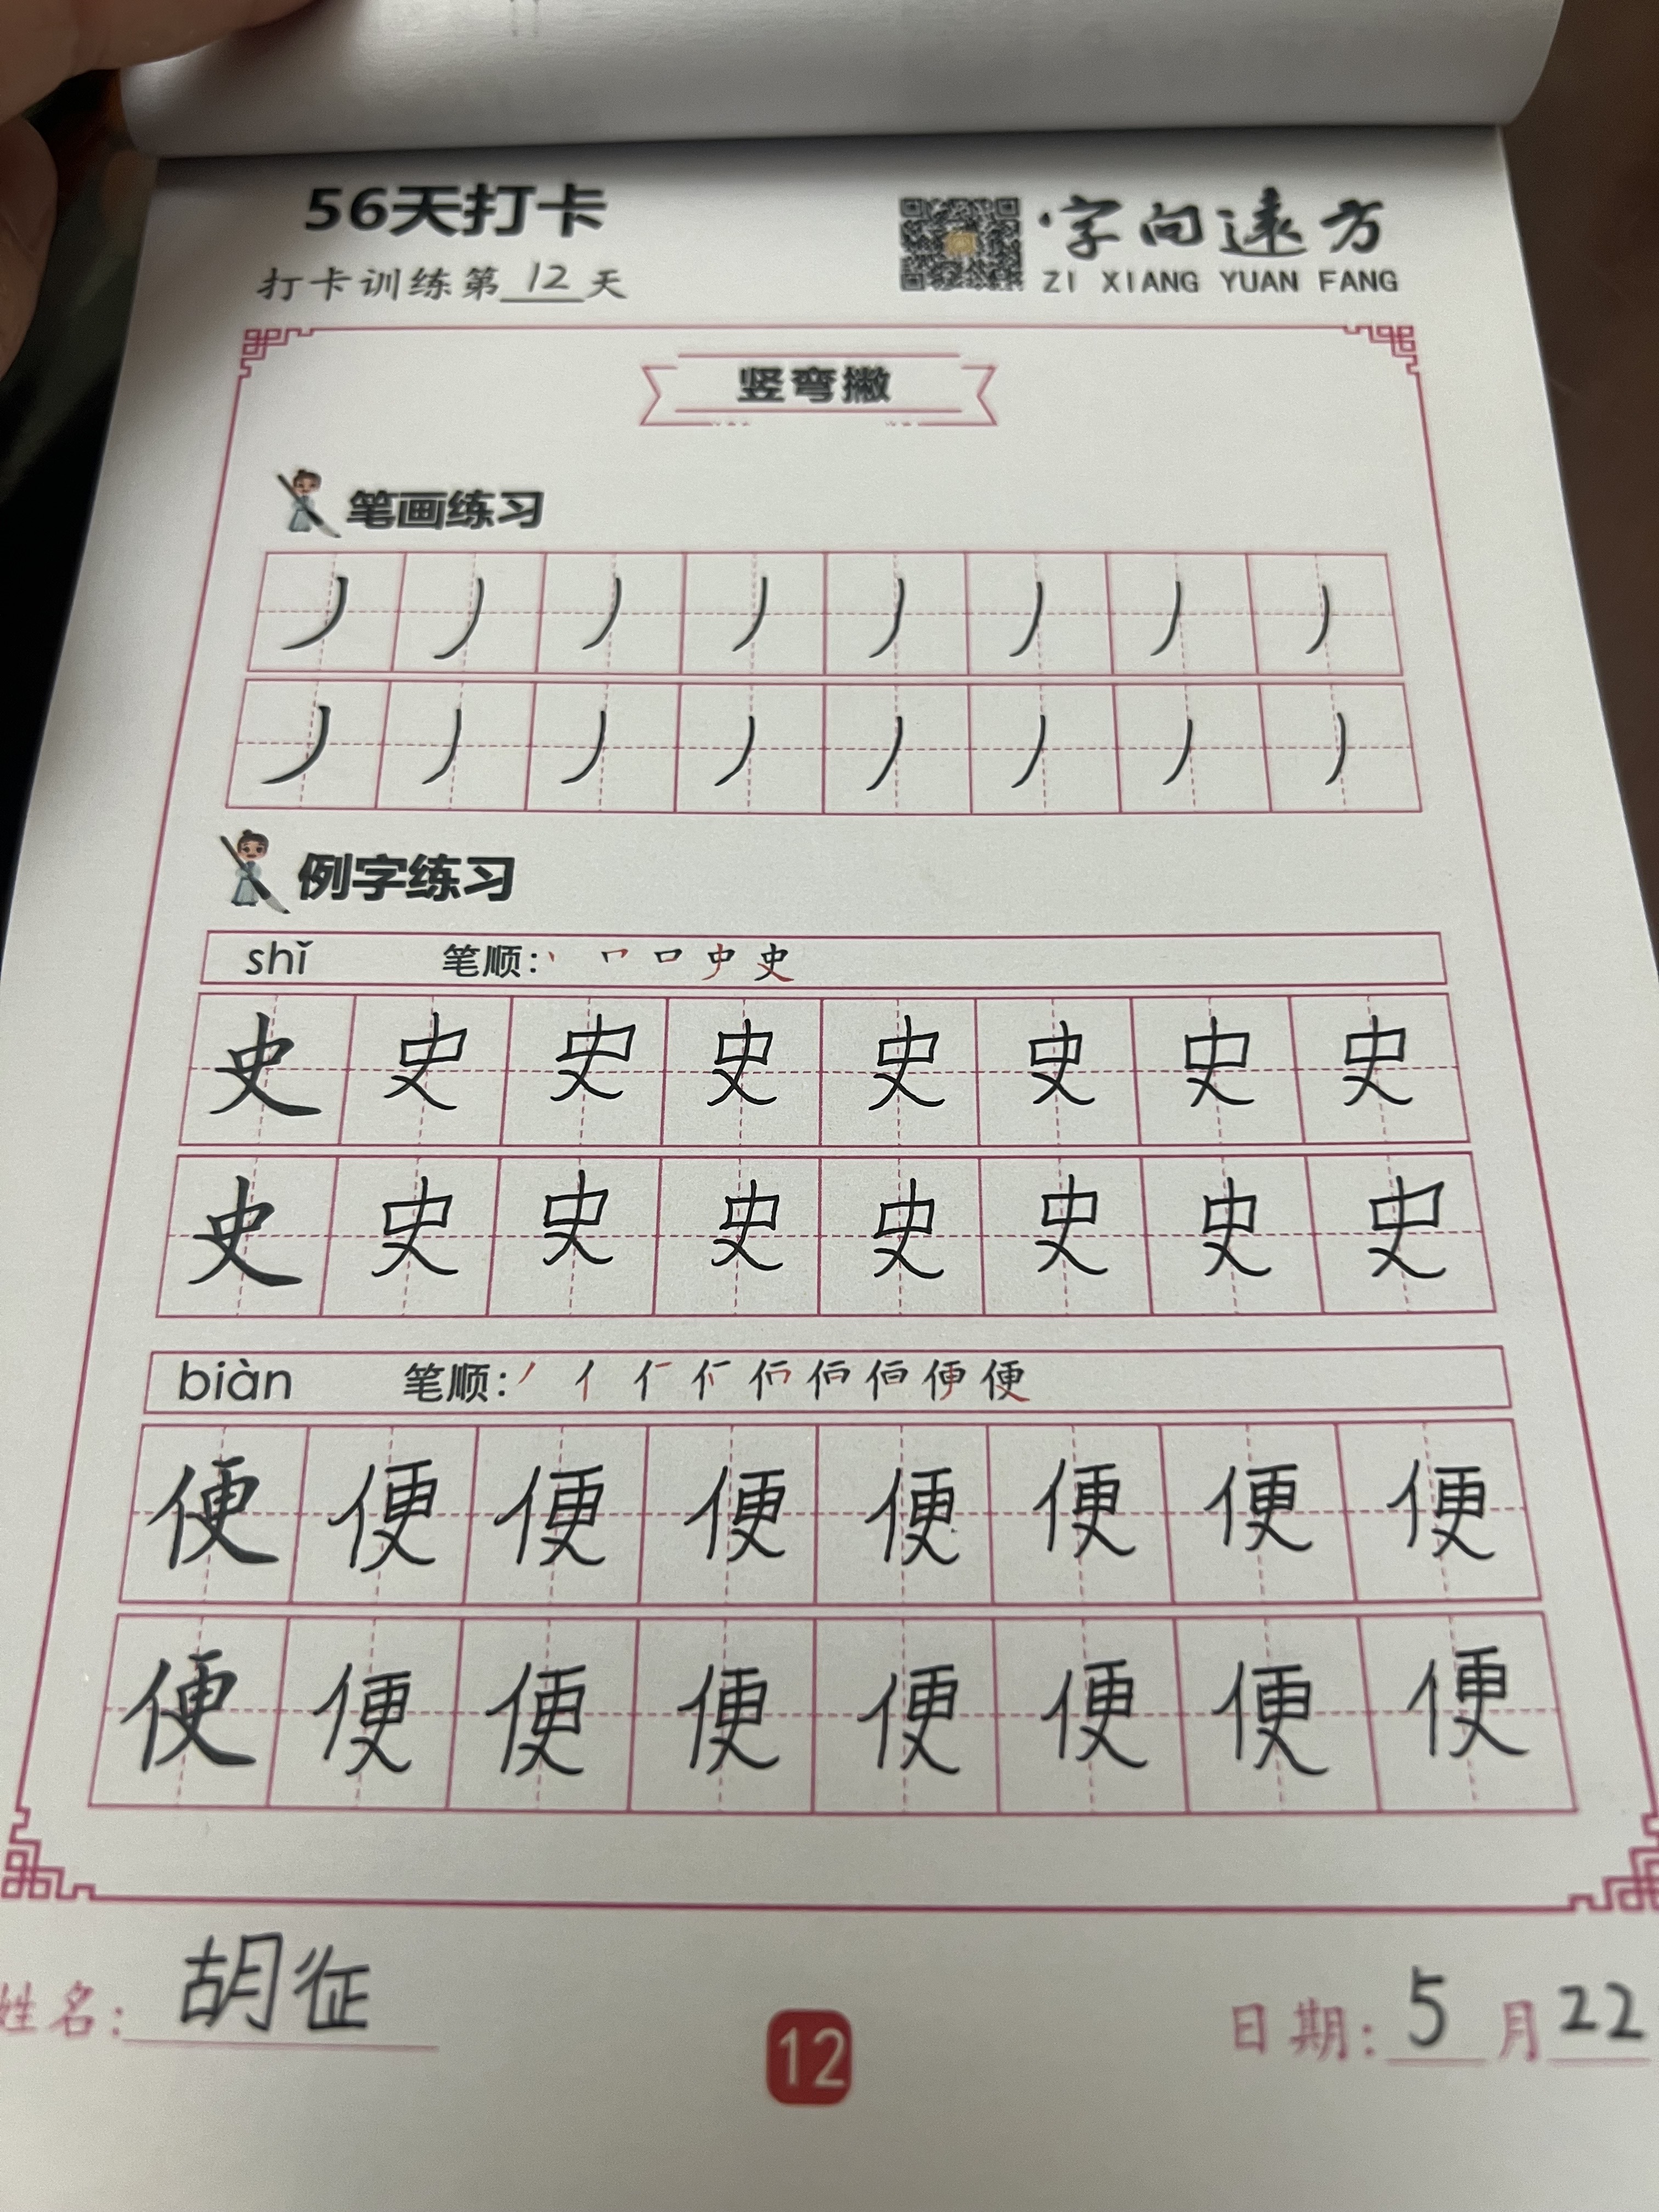 56天打卡
打卡训练第12天
字向远方
ZI XIANG YUAN FANG
竖弯撇
笔画练习
丿丿丿丿丿丿丿丿
丿丿丿丿丿丿丿丿
例字练习
shǐ 笔顺: 丶 𠃍 口 史 史
史史史史史史史史
史史史史史史史史
biàn 笔顺: 丿 亻 便
便便便便便便便便
便便便便便便便便
姓名: 胡征
12
日期: 5月22